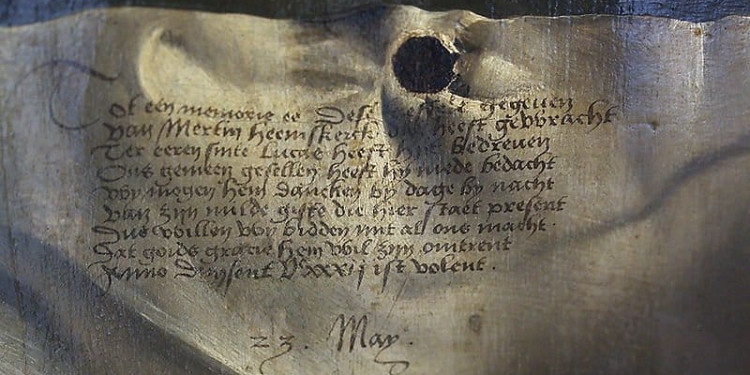 Tot een memorie es dese tafel gegeven
Van Mertin Heemskerck diet heeft gewracht
Ter eeren sinte Lucas heeft hijt bedreven
Ons gemeen gesellen heeft hy mede bedacht
Wy mogen hem dancken by dage by nacht
Van zyn milde gifte die hier staet present
Dus willen wy bidden mit al ons macht.
Dat goids gracie hem wil zyn omtrent
Anno Duysent Vcxxxij ist volent.
23. May.